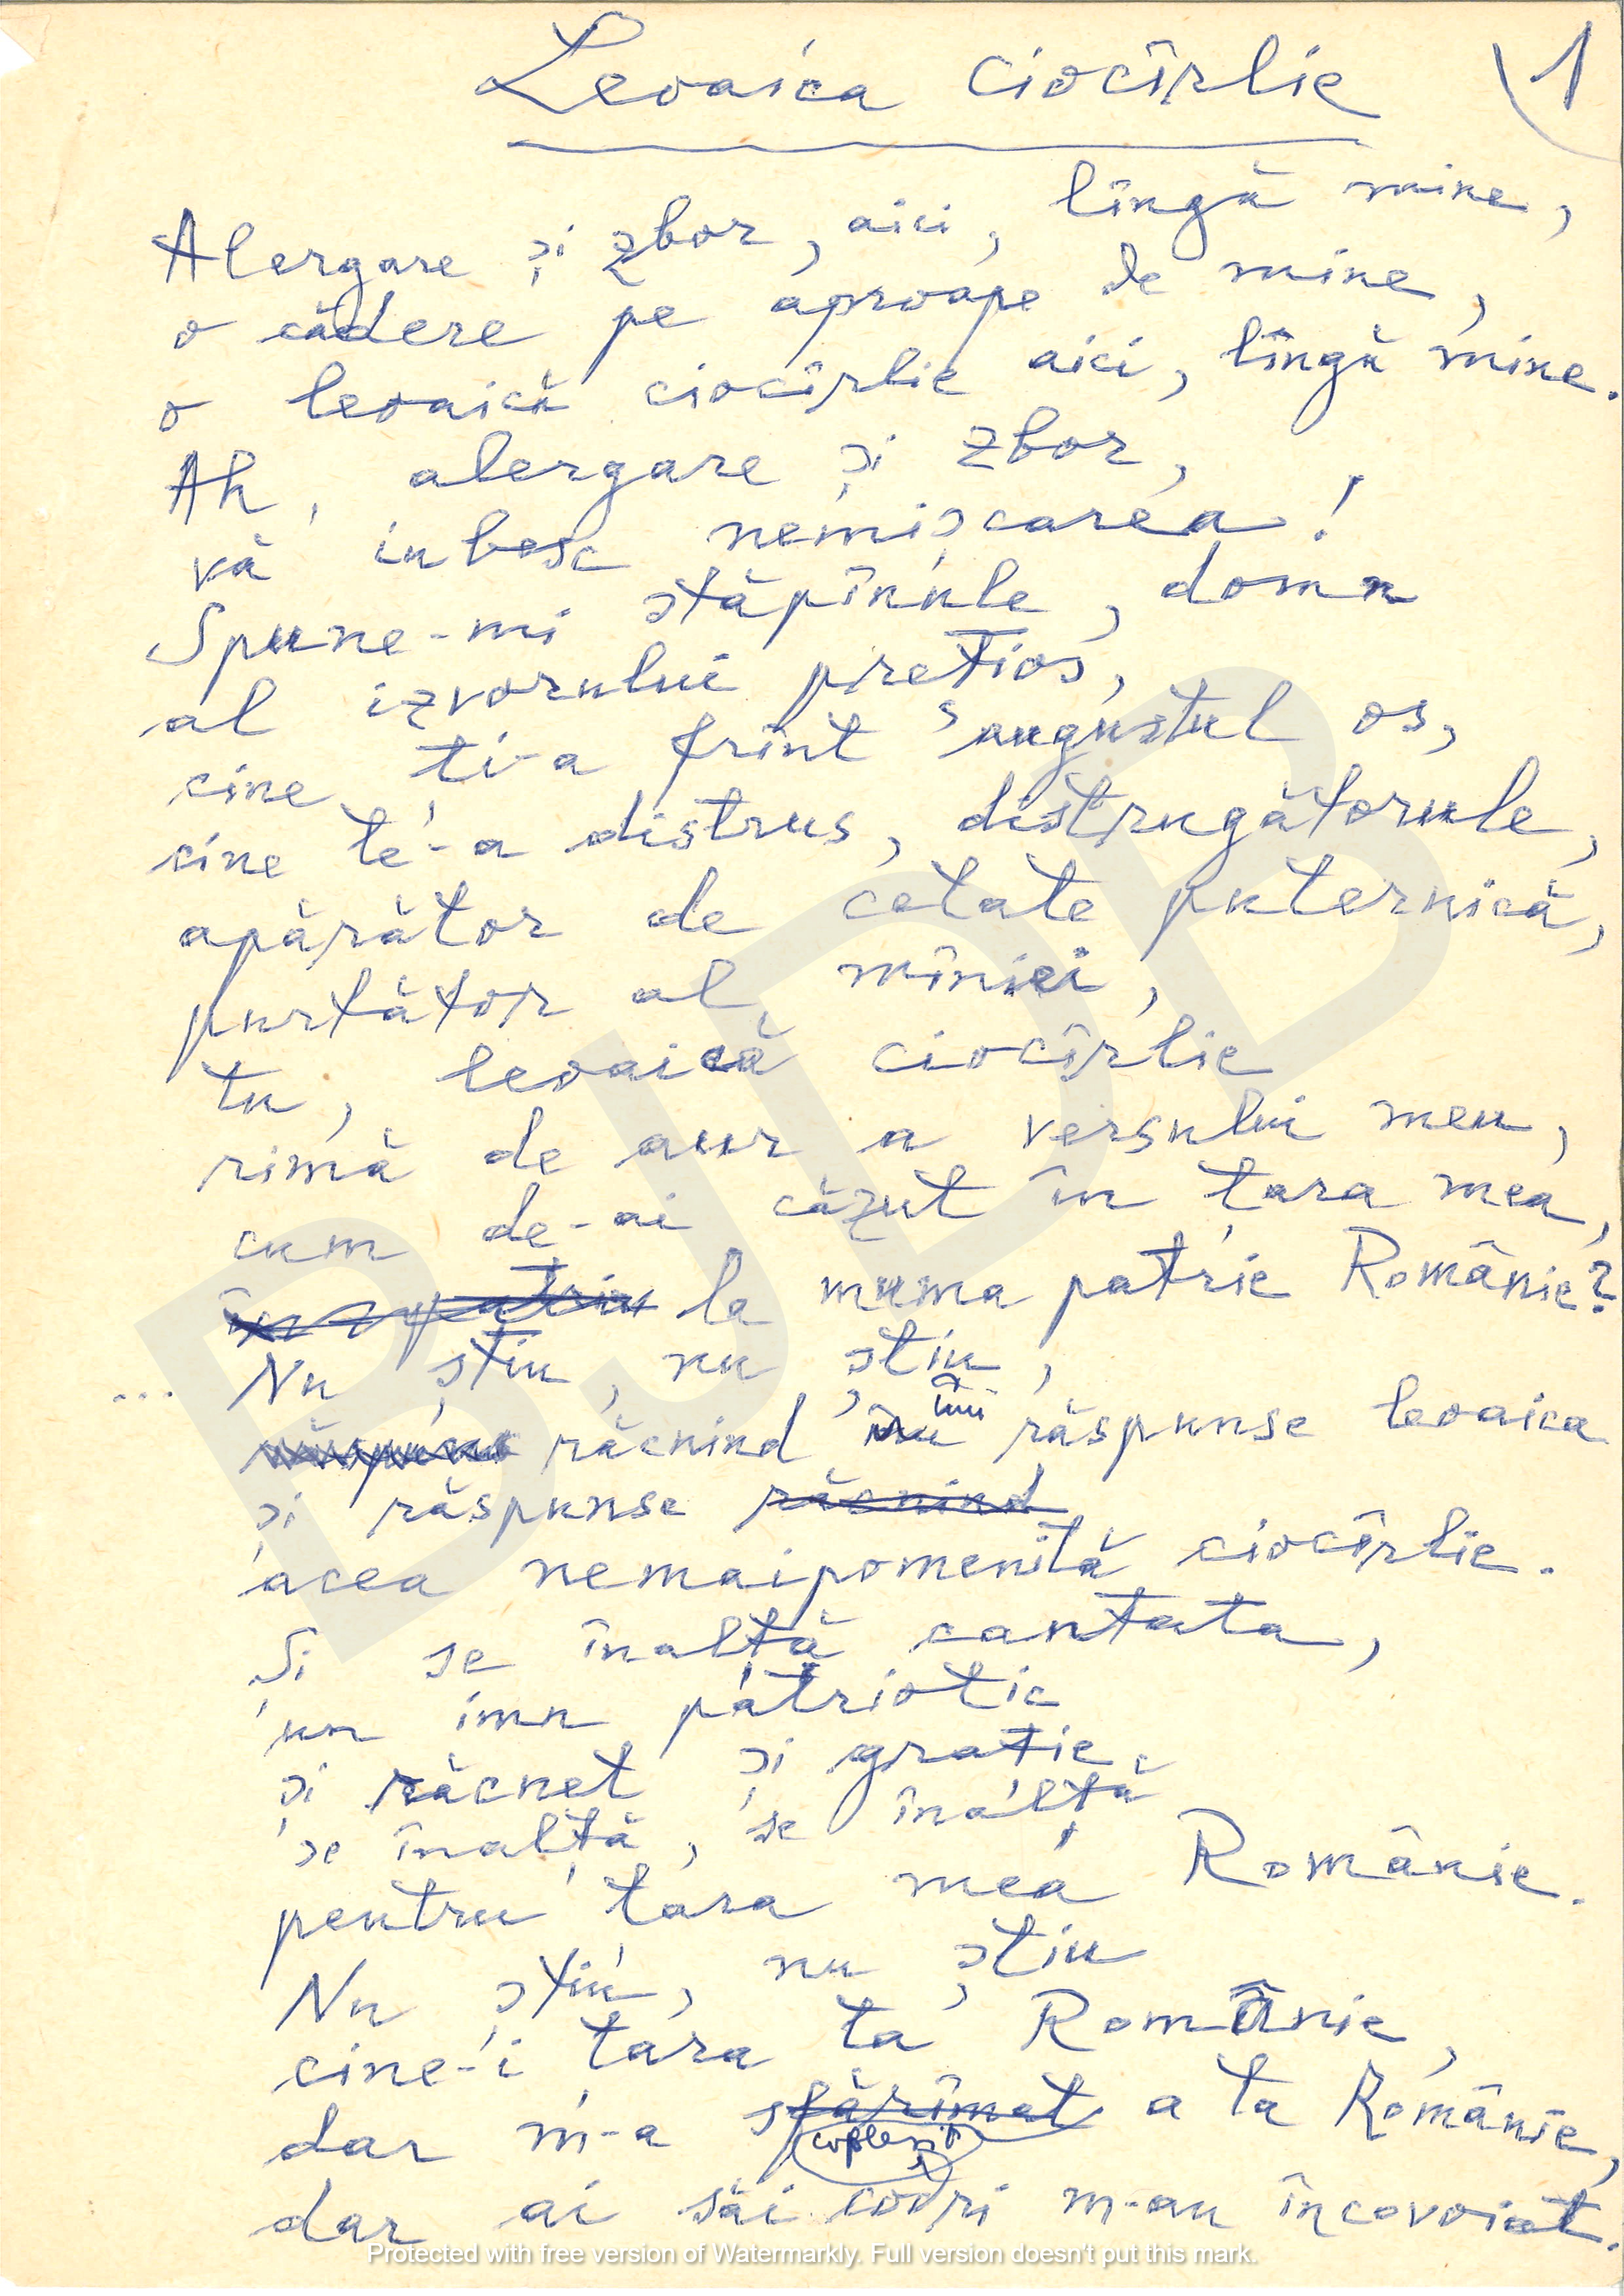 Leoaica ciocîrlie
1
Alergare și zbor, aici, lîngă mine,
o cădere pe aproape de mine,
o leoaică ciocîrlie aici, lîngă mine.
Ah, alergare și zbor,
vă iubesc nemișcarea!
Spune-mi stăpînule, domn
al izvorului prețios,
cine ți-a frînt augustul os,
cine te-a distrus, distrugătorule,
apărător de cetate puternică,
purtător al mîniei,
tu, leoaică ciocîrlie
rimă de aur a versului meu,
cum de-ai căzut în țara mea,
în patria la muma patrie Românie?
... Nu știu, nu știu,
răcnind îmi răspunse leoaica
și răspunse răcnind
acea nemaipomenită ciocîrlie.
Și se înalță cantata,
un imn patriotic
și răcnet și grație.
se înalță, se înalță
pentru țara mea Românie.
Nu știu, nu știu
cine-i țara ta Românie,
dar m-a sfărîmat a ta Românie,
copleșit
dar ai săi codri m-au încovoiat.
BJDB
Protected with free version of Watermarkly. Full version doesn't put this mark.